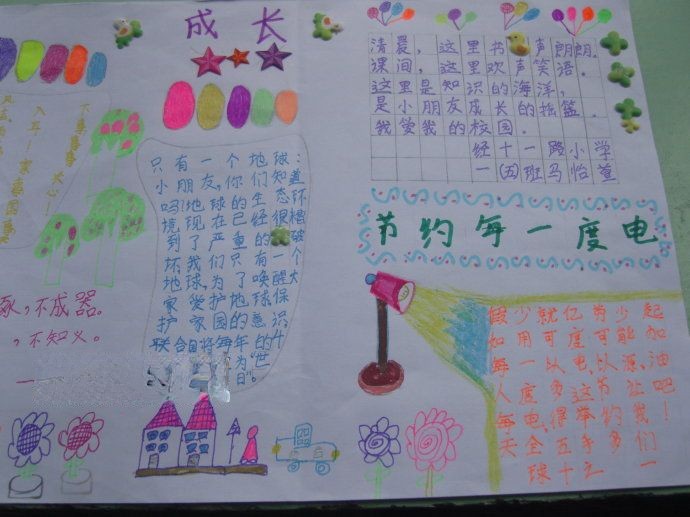 成长
入耳！家事国事
下事事事关心！
琢，不成器。
，不知义。
只有一个地球：
小朋友，你们知道
吗？地球的生态环
境现在已经很糟
到了严重的破
坏，我们只有一个
地球，为了唤醒大
家爱护地球，保
护家园的意识
联合国将每年的
为“世
日”。
清晨，这里书声朗朗。
课间，这里欢声笑语。
这里是知识的海洋，
是小朋友成长的摇篮。
我爱我的校园。
经十一路小学
一（五）班马怡萱
节约每一度电
假如每人每天
少用一度电，全球
就可以多得五十
亿度电，这举手之
节可以节约多
少能源，让我们一
起加油吧！